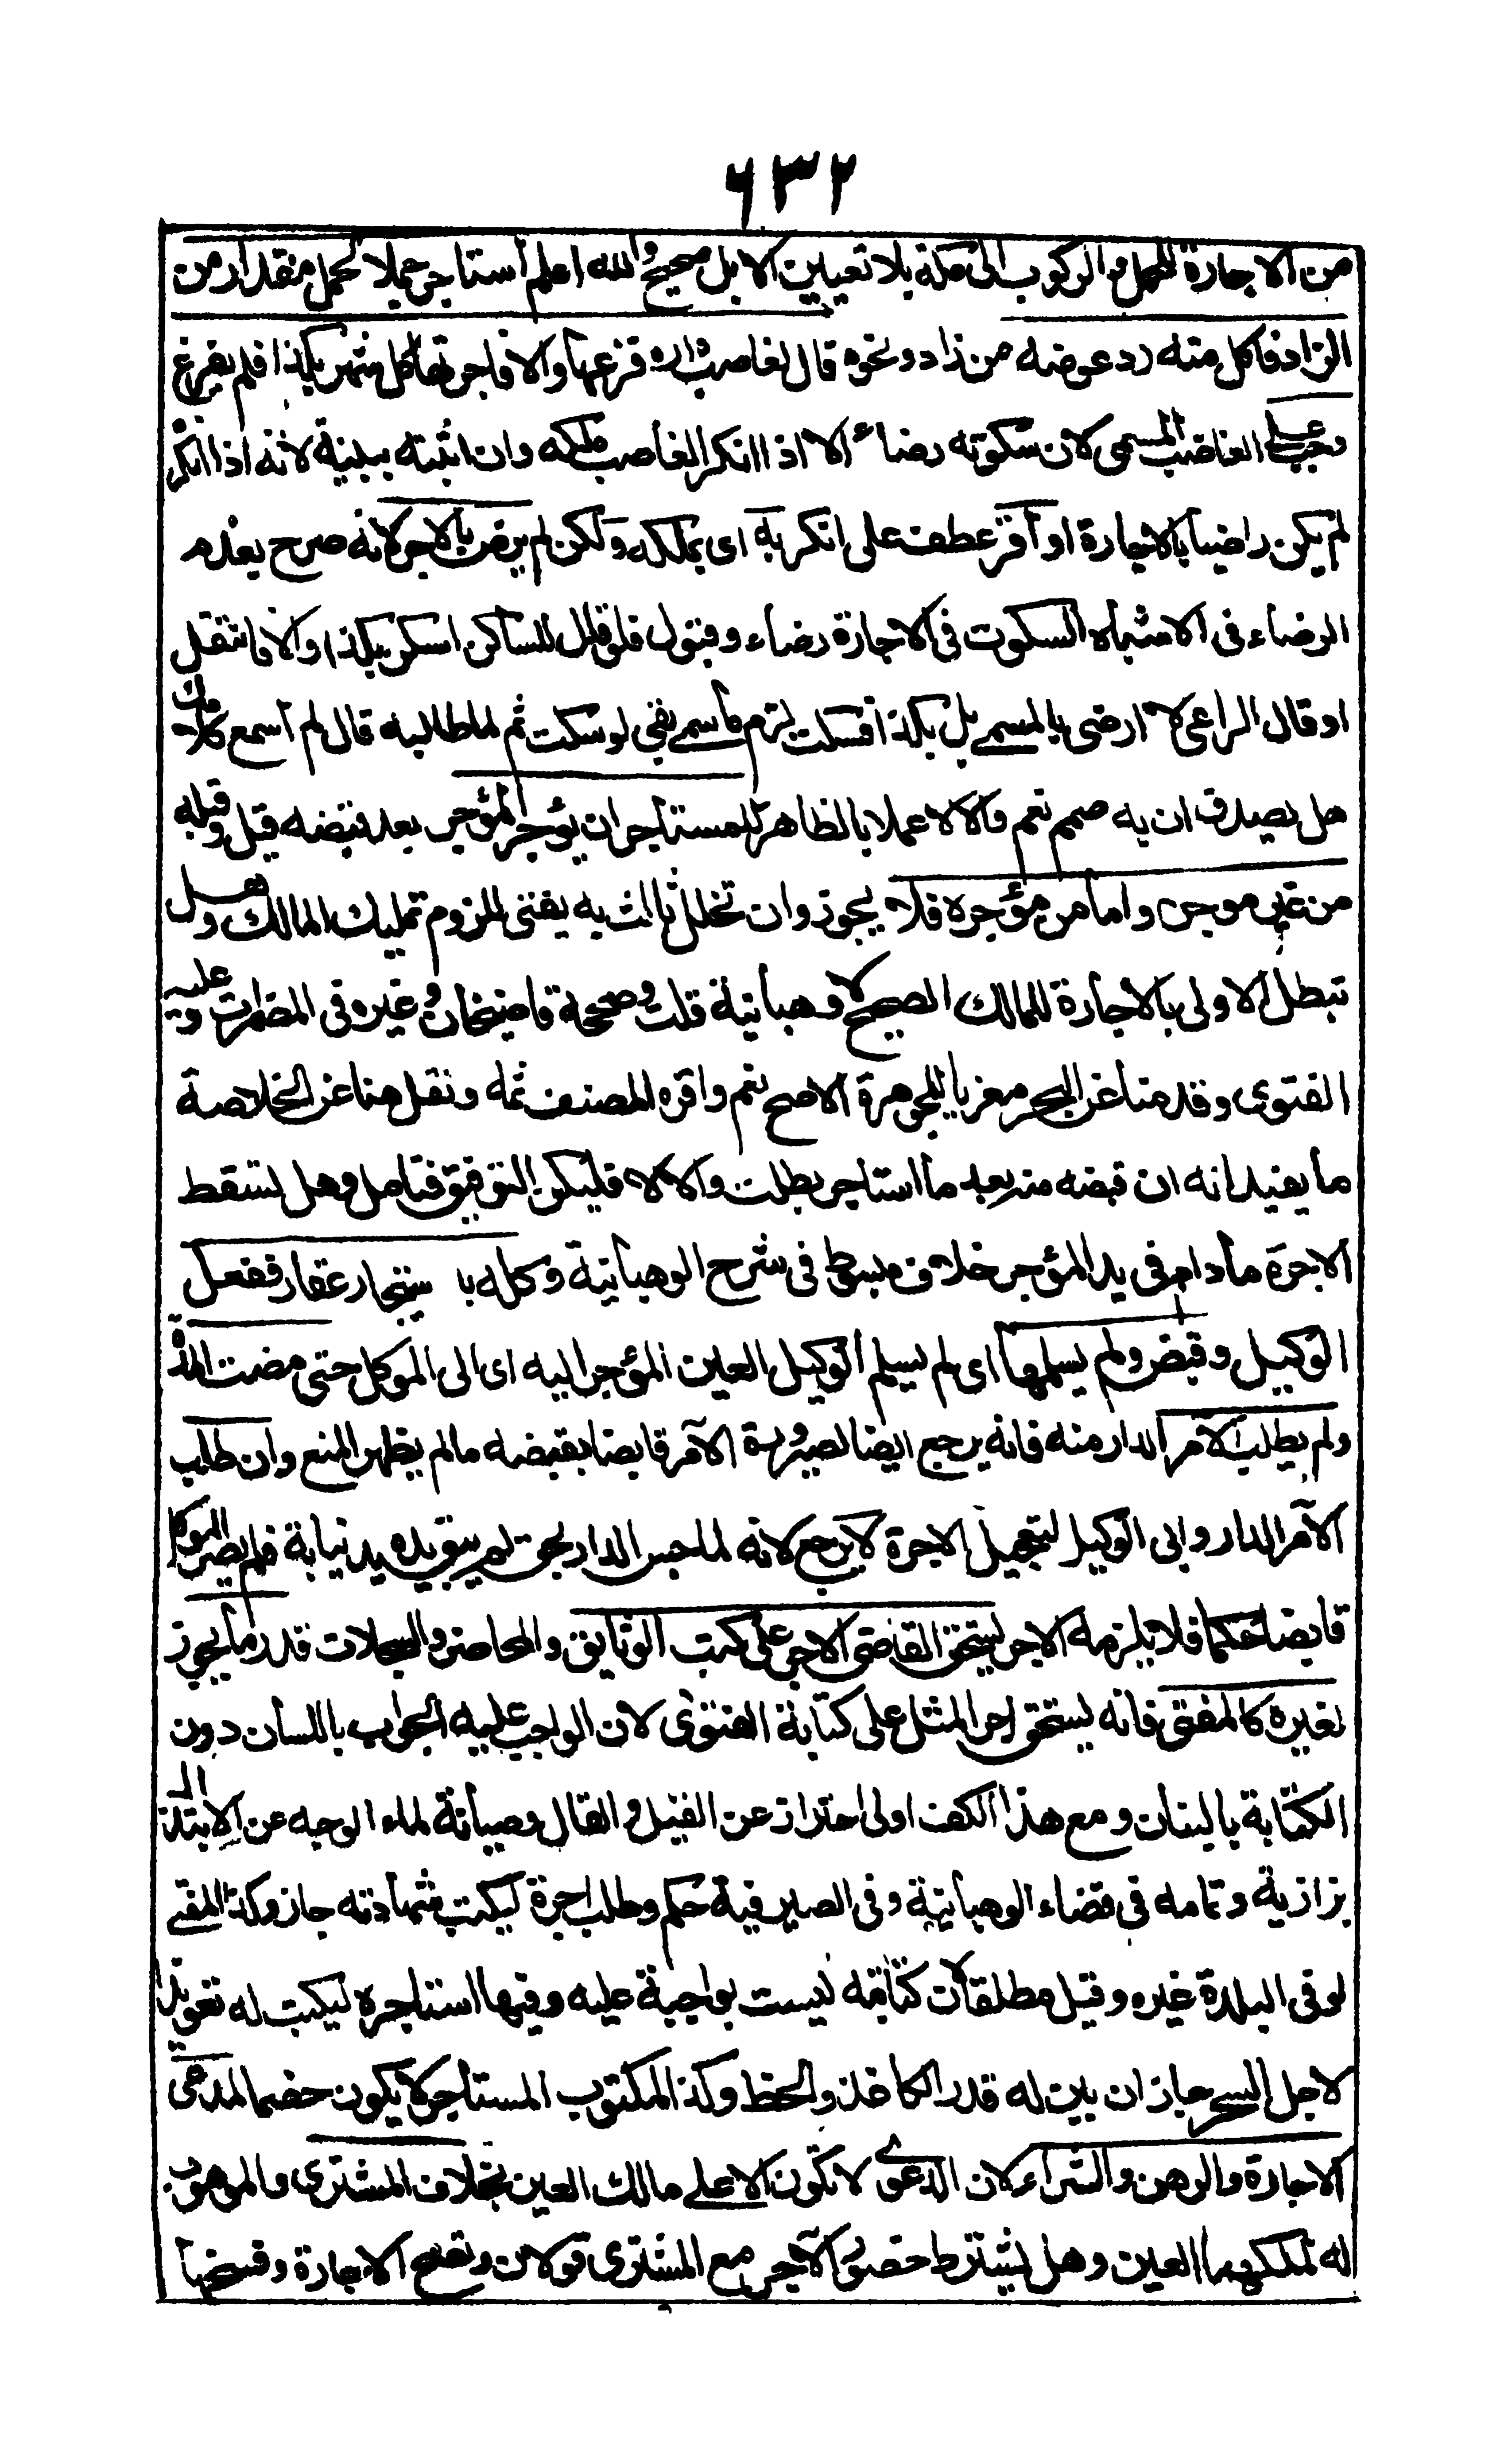 ٦٣٢
من الاجارة للحمل والركوب الى مكة بلا تعيين الابل صحيح والله اعلم استاجر جملا لحمل مقدار من
الزاد فاكل منه رد عوضه من زاد ونحوه قال لغاصب داره فرغها والا فاجرتها كل شهر بكذا فلم يفرغ
وجب على الغاصب المسمى لان سكوته رضاء الا اذا انكر الغاصب ملكه وان اثبته ببينة لانه اذا انكر
لم يكن راضيا بالاجارة او اقر عطف على انكر به اى بملكه ولكن لم يرض بالاجر لانه صرح بعدم
الرضاء فى الاشباه السكوت فى الاجارة رضاء وقبول فلو قال للساكن اسكن بكذا والا فانتقل
او قال الراعى لا ارضى بالمسمى بل بكذا فسكت لزم ما سمى بقى لو سكت ثم لما طالبه قال لم اسمع كلامك
هل يصدق ان به صمم نعم والا لا عملا بالظاهر للمستاجر ان يؤجر المؤجر بعد قبضه قيل وقبله
من غير موجره واما من مؤجره فلا يجوز وان تخلل ثالث به يفتى للزوم تمليك المالك وهل
تبطل الاولى بالاجارة للمالك الصحيح لا وهبانية قلت وصححه قاضيخان وغيره فى المضمرات وعليه
الفتوى وقدمنا عن البحر معزيا للجوهرة الاصح نعم واقره المصنف ثمه ونقل هنا عن الخلاصة
ما يفيد انه ان قبضه منه بعد ما استاجر بطلت والا لا فليكن التوفيق فتامل وهل تسقط
الاجرة ما دام فى يد المؤجر خلاف مبسوط فى شرح الوهبانية وكله با ستيجار عقار ففعل
الوكيل وقبض ولم يسلمها اى لم يسلم الوكيل العين المؤجر اليه اى الى الموكل حتى مضت المدة
ولم يطلب الآمر الدار منه فانه يرجع ايضا لصيرورة الآمر قابضا بقبضه مالم يظهر المنع وان طلب
الآمر الدار وابى الوكيل لتعجيل الاجرة لا يرجع لانه لما حبس الدار بحق لم يبق يده يد نيابة فلم يصر الموكل
قابضا حكما فلا يلزمه الاجر يستحق القاضى الاجر على كتب الوثايق والمحاضر والسجلات قدر ما يجوز
لغيره كالمفتى فانه يستحق اجر المثل على كتابة الفتوى لان الواجب عليه الجواب باللسان دون
الكتابة بالبنان ومع هذا الكف اولى احترازا عن القيل والقال وصيانة لماء الوجه عن الابتذال
بزازية وتمامه فى قضاء الوهبانية وفى الصيرفية حكم وطلب اجرة ليكتب شهادته جاز وكذا المفتى
لو فى البلدة غيره وقيل مطلقا لان كتابته ليست بواجبة عليه وفيها استاجره ليكتب له تعويذا
لاجل السحر جاز ان بين له قدر الكاغذ والخط وكذا المكتوب المستاجر لا يكون خصما لمدعى
الاجارة والرهن والشراء لان الدعوى لا تكون الا على مالك العين بخلاف المشترى والموهوب
له لملكهما العين وهل يشترط حضور الآجر مع المشترى قولان وتصح الاجارة وفسخها